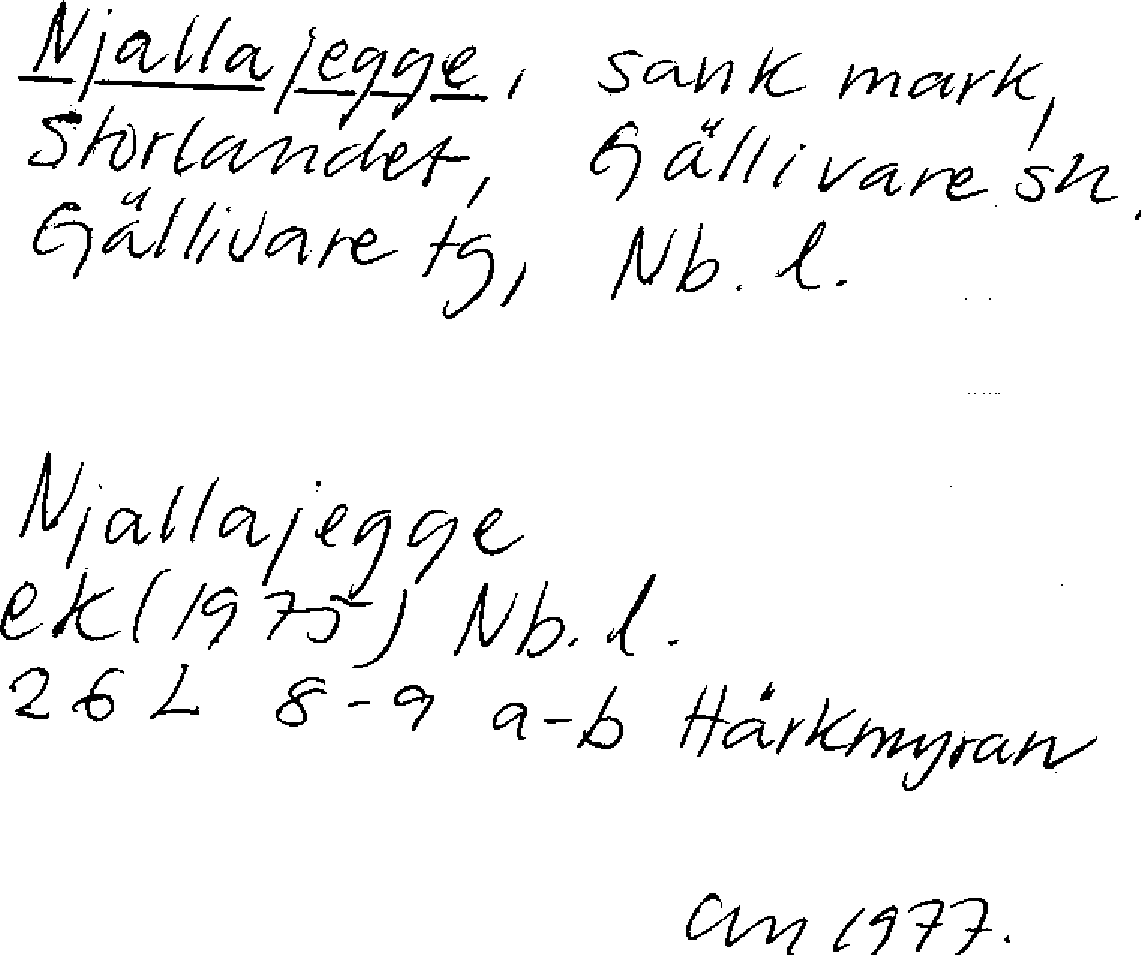 Njallajegge, sank mark,
Storlandet, Gällivare sn.
Gällivare tg, Nb. l.
Njallajegge
ek (1975) Nb. l.
26 L 8-9 a-b Hårkmyran
1977.